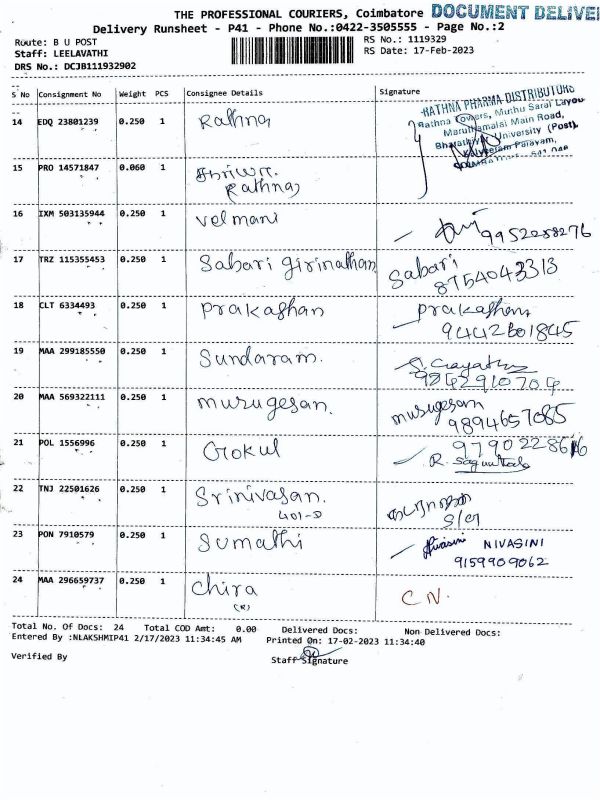 THE PROFESSIONAL COURIERS, Coimbatore DOCUMENT DELIVE
Delivery Runsheet - P41 - Phone No.:0422-3505555 - Page No.:2
Route: B U POST RS No.: 1119329
Staff: LEELAVATHI RS Date: 17-Feb-2023
DRS No.: DCJB111932902
S No Consignment No Weight PCS Consignee Details Signature
14 EDQ 23801239 0.250 1 Rathna
RATHNA PHARMA DISTRIBUTORS
Rathna Towers, Muthu Sarai Layou
Maruthamalai Main Road,
Bharathiyar University (Post),
Kalveeram Palayam,
15 PRO 14571847 0.060 1
Rathna
16 IXM 503135944 0.250 1 velmani 9952288276
17 TRZ 115355453 0.250 1 Sabari girinathan Sabari
8754043313
18 CLT 6334493 0.250 1 prakashan prakashan
9442601845
19 MAA 299185550 0.250 1 Sundaram. S. Gayathri
9842910704
20 MAA 569322111 0.250 1 murugesan. murugesan
9894657085
21 POL 1556996 0.250 1 Gokul 9790228616
R.
22 TNJ 22501626 0.250 1 Srinivasan.
401-D S/O
23 PON 7910579 0.250 1 Sumathi Nivasini NIVASINI
9159909062
24 MAA 296659737 0.250 1 Chira C N.
(R)
Total No. Of Docs: 24 Total COD Amt: 0.00 Delivered Docs: Non Delivered Docs:
Entered By :NLAKSHMIP41 2/17/2023 11:34:45 AM Printed On: 17-02-2023 11:34:40
Verified By Staff Signature